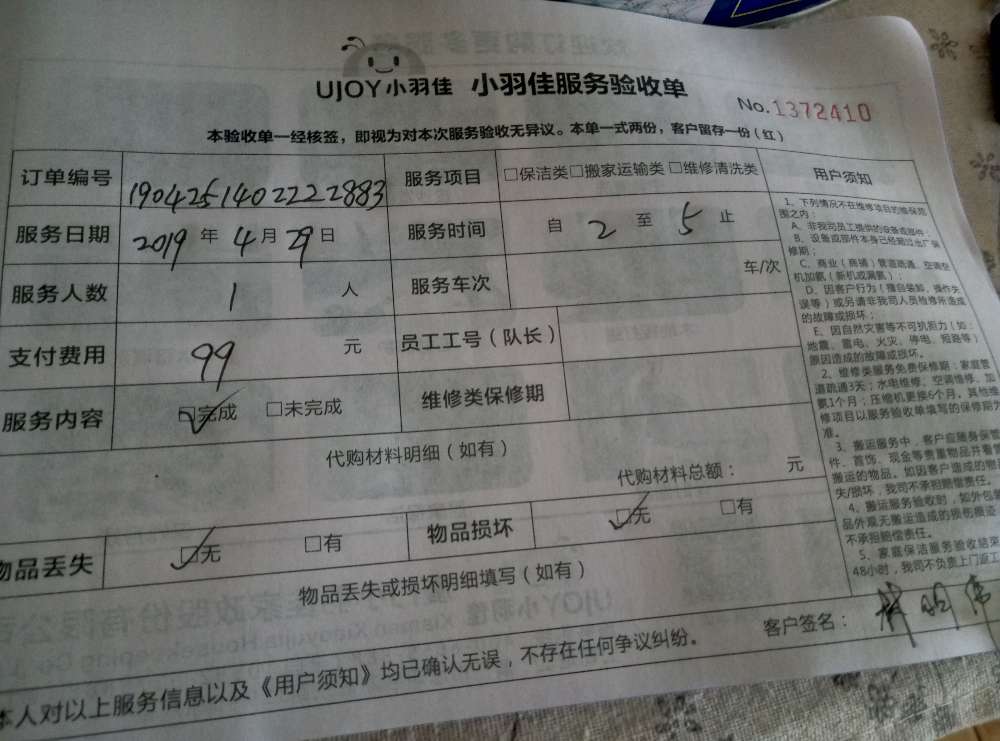 UJOY小羽佳 小羽佳服务验收单
No.1372410
本验收单一经核签，即视为对本次服务验收无异议。本单一式两份，客户留存一份（红）
订单编号 1904251402222883 服务项目 □保洁类□搬家运输类 □维修清洗类
服务日期 2019 年 4 月 29 日 服务时间 自 2 至 5 止
服务人数 1 人 服务车次 车/次
支付费用 99 元 员工工号（队长）
服务内容 ☑完成 □未完成 维修类保修期
代购材料明细（如有）
代购材料总额： 元
物品丢失 ☑无 □有 物品损坏 ☑无 □有
物品丢失或损坏明细填写（如有）
本人对以上服务信息以及《用户须知》均已确认无误，不存在任何争议纠纷。 客户签名：
用户须知
1、下列情况不在维修项目的维保范
围之内：
A、非我司员工提供的设备或部件；
B、设备或部件本身已经超过出厂保
修期；
C、商业（商铺）管道疏通、空调空
机加氨（新机或漏氨）；
D、因客户行为（擅自装卸、操作失
误等）或另请非我司人员检修所造成
的故障或损坏；
E、因自然灾害等不可抗拒力（如：
地震、雷电、火灾、停电、短路等）
原因造成的故障或损坏。
2、维修类服务免费保修期：家庭管
道疏通3天；水电维修、空调维修、加
氨1个月；压缩机更换6个月。其他维
修项目以服务验收单填写的保修期为
准。
3、搬运服务中，客户应随身保管
件、首饰、现金等贵重物品并看
搬运的物品。如因客户造成的物
失/损坏，我司不承担赔偿责任。
4、搬运服务验收时，如外包
品外观无搬运造成的损伤痕迹
不承担赔偿责任。
5、家庭保洁服务验收结束
48小时，我司不负责上门返工